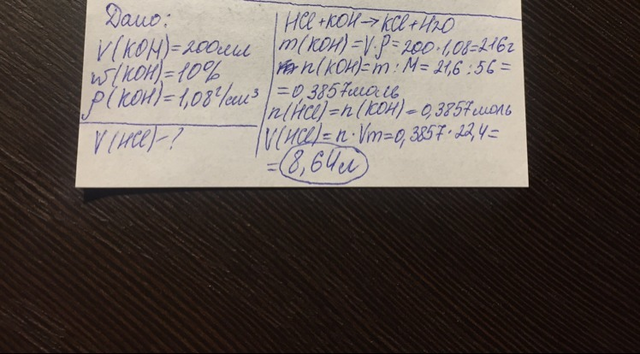 Дано:
V(KOH)=200мл
w(KOH)=10%
ρ(KOH)=1,08г/см³
V(HCl)-?
HCl+KOH→KCl+H2O
m(KOH)=V·ρ=200·1,08=216г
n(KOH)=m:M=21,6:56=
=0,3857моль
n(HCl)=n(KOH)=0,3857моль
V(HCl)=n·Vm=0,3857·22,4=
=8,64л